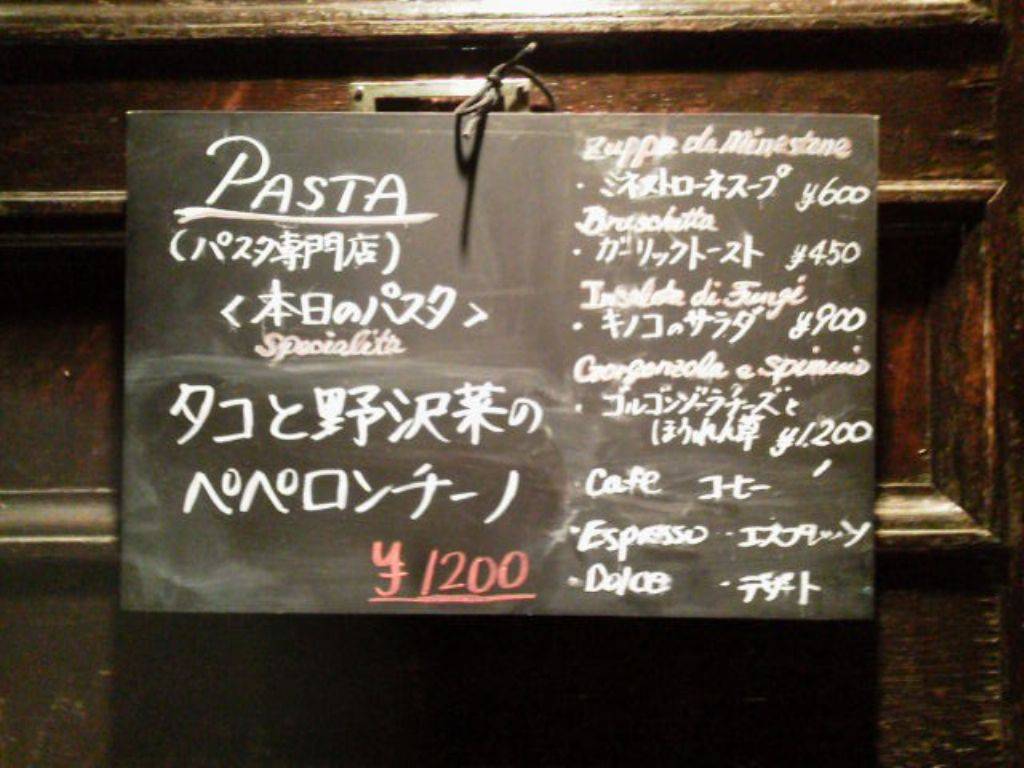 PASTA
(パスタ専門店)
<本日のパスタ>
Specialita
タコと野沢菜の
ペペロンチーノ
¥1200
Zuppa di Minestone
・ミネストローネスープ ¥600
Bruschetta
・ガーリックトースト ¥450
Insalata di Fungi
・キノコのサラダ ¥900
Gorgonzola e Spinacio
・ゴルゴンゾーラチーズと
ほうれん草 ¥1,200
・Cafe コーヒー
・Espresso ・エスプレッソ
・Dolce ・デザート